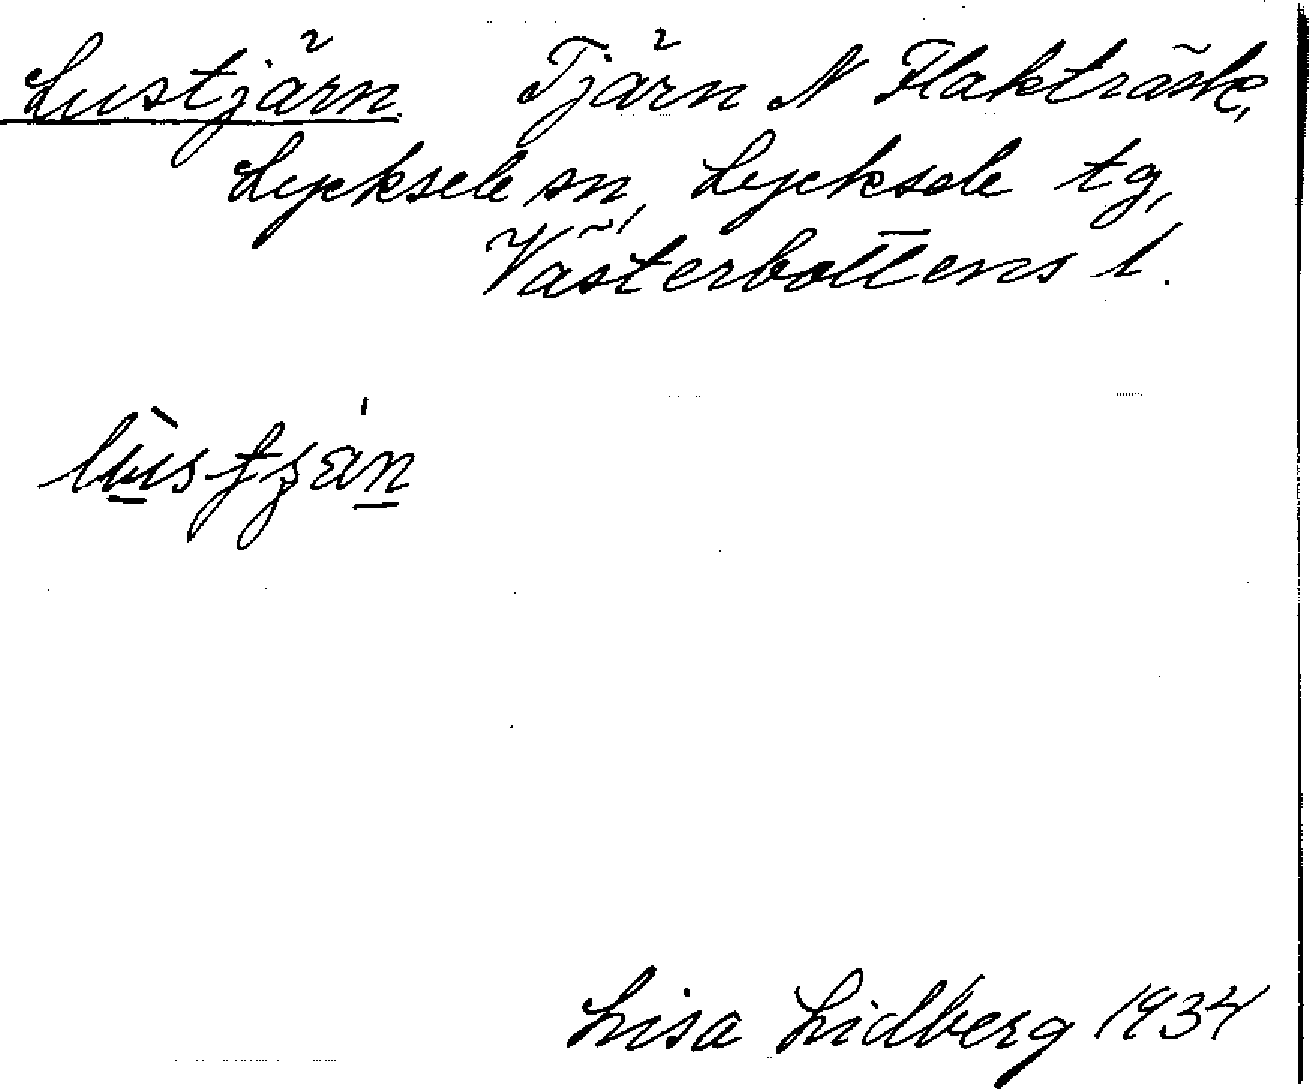 Lustjärn Tjärn N Flakträsk,
Lycksele sn, Lycksele tg,
Västerbottens l.
Lisa Lidberg 1934